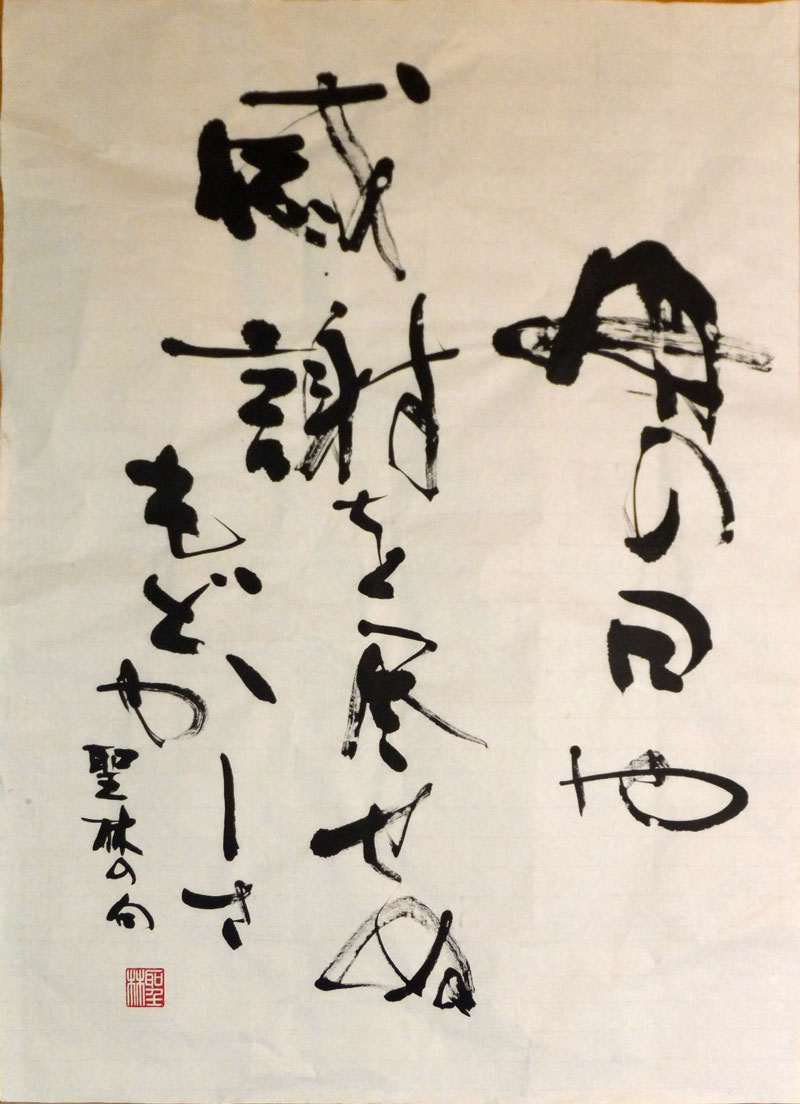 母の日や
感謝を尽せぬ
もどかしさ
聖林の句
聖林